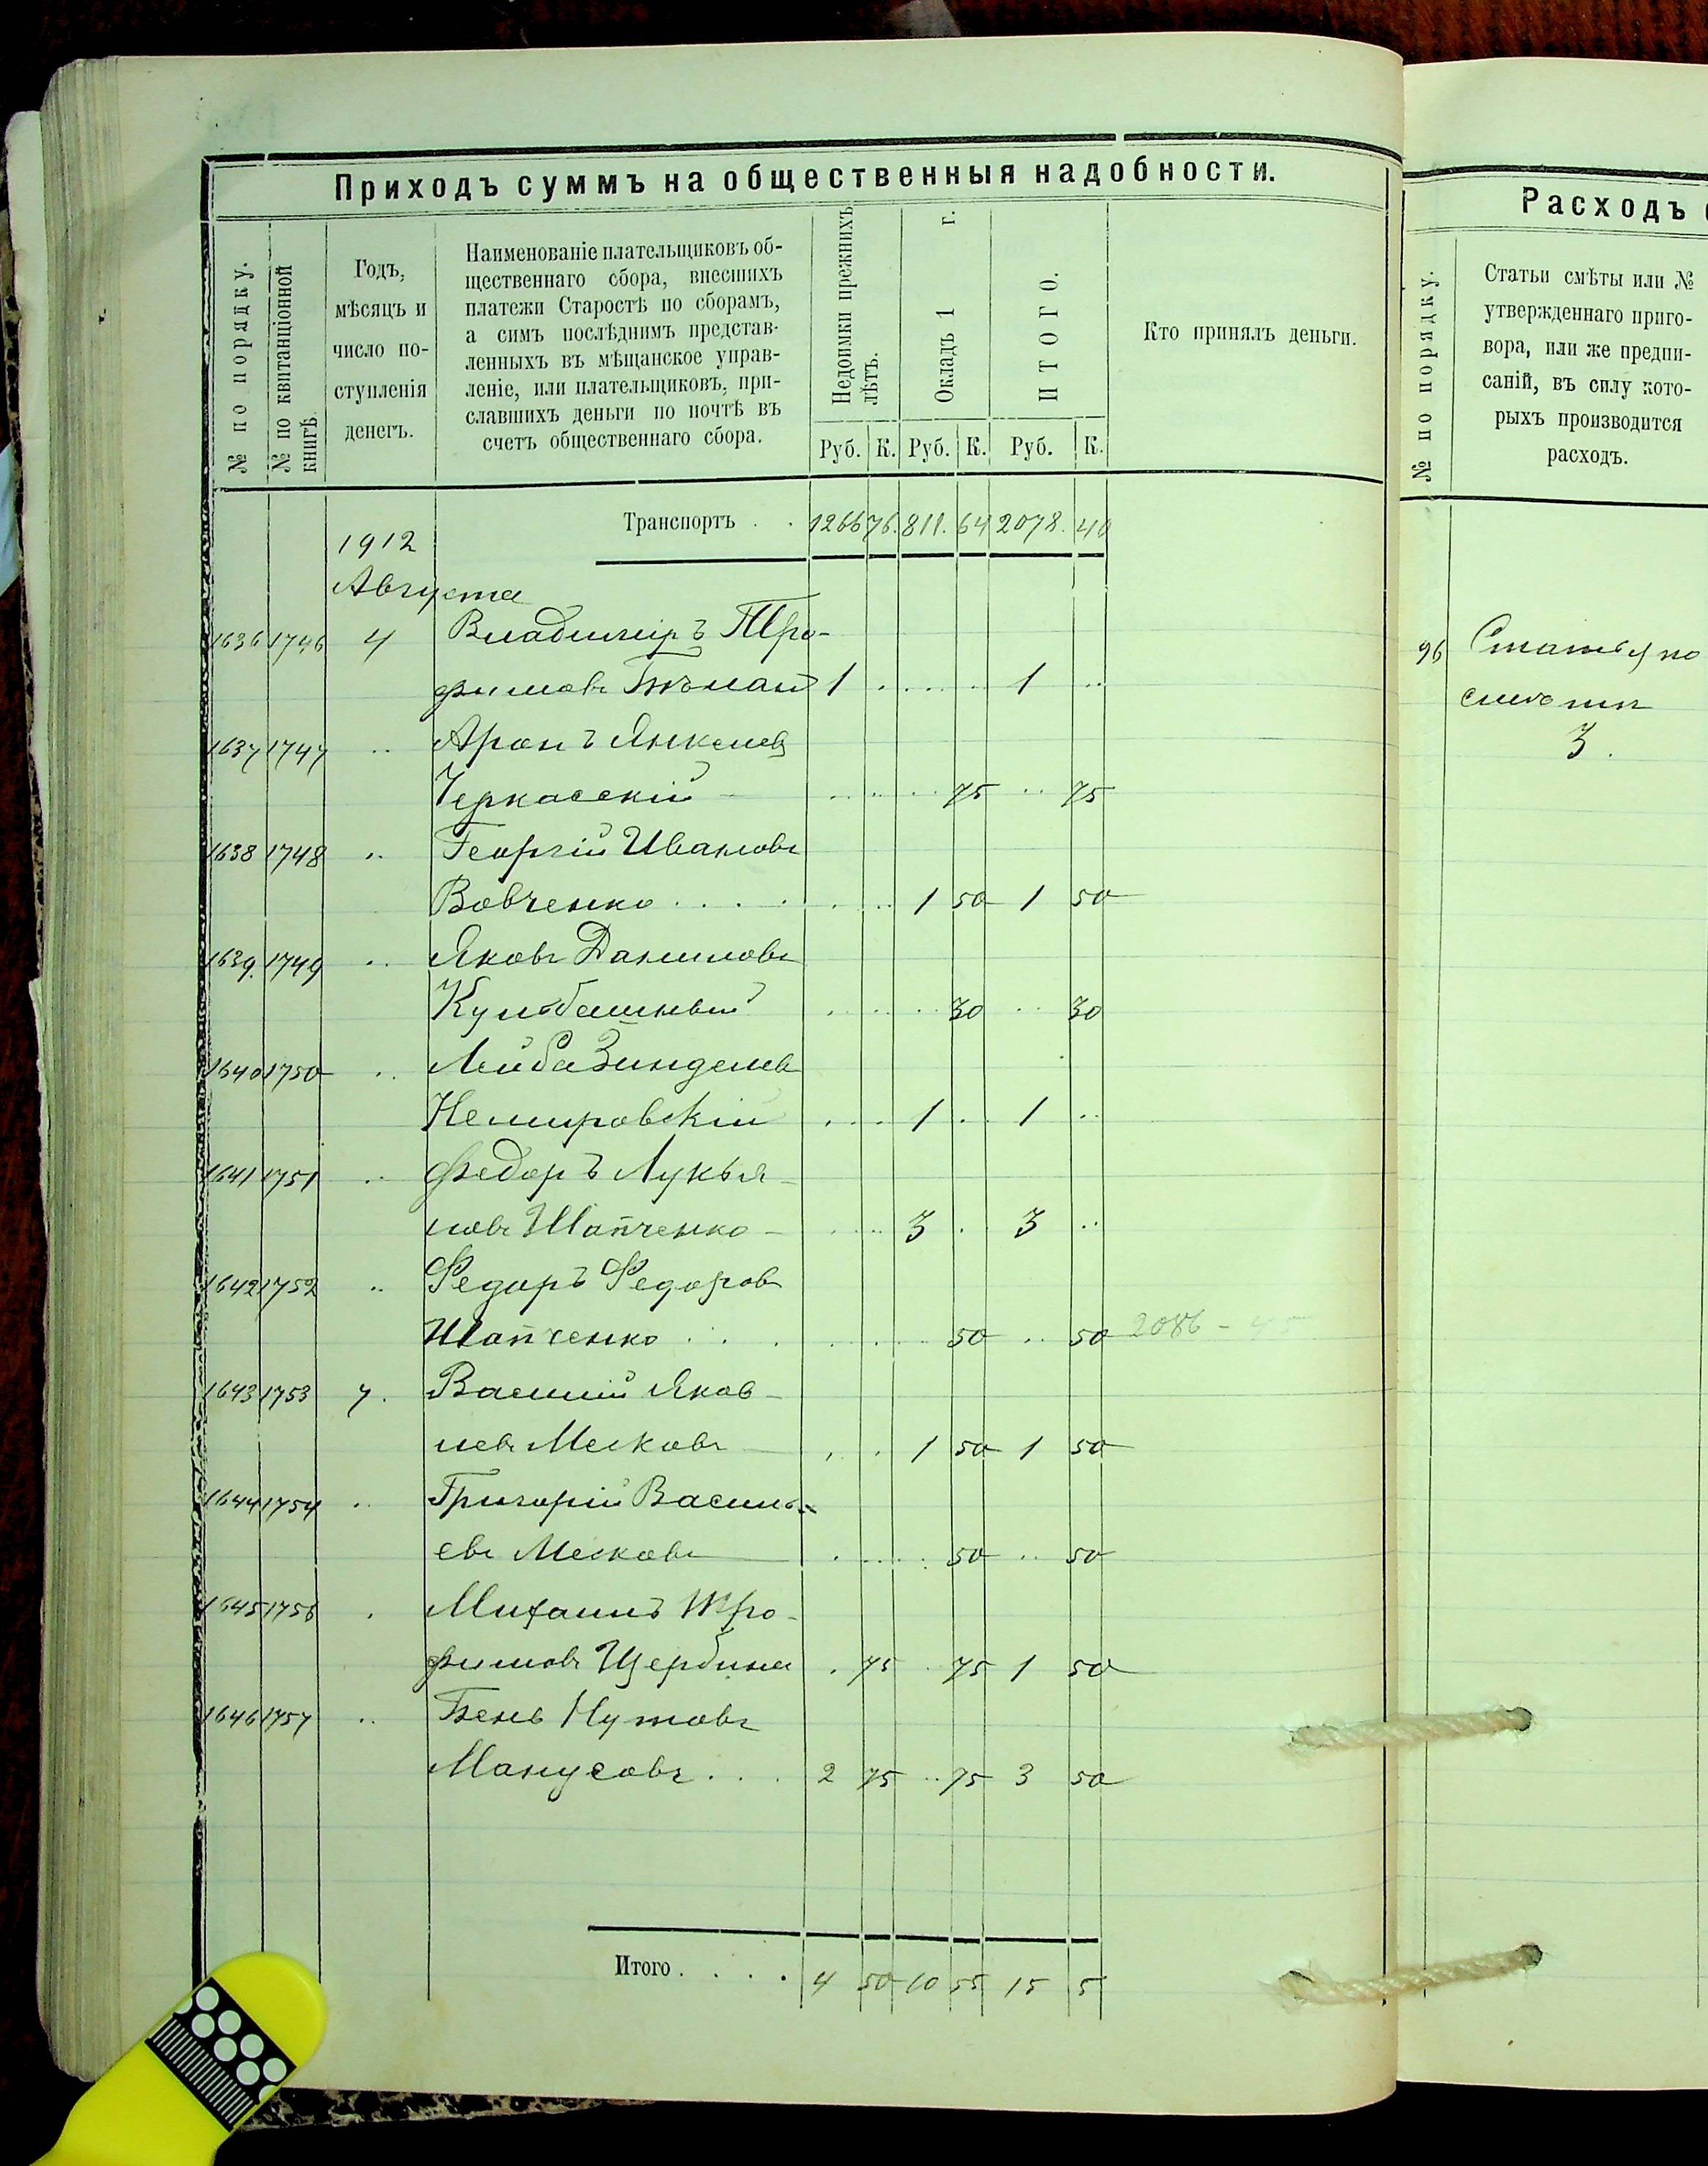 Приходъ суммъ на общественныя надобности.
№ по порядку.
№ по квитанціонной книгѣ.
Годъ,
мѣсяцъ и
число по-
ступленія
денегъ.
Наименованіе плательщиковъ об-
щественнаго сбора, внесшихъ
платежи Старостѣ по сборамъ,
а симъ послѣднимъ представ-
ленныхъ въ мѣщанское управ-
леніе, или плательщиковъ, при-
славшихъ деньги по почтѣ въ
счетъ общественнаго сбора.
Недоимки прежнихъ лѣтъ.
Окладъ 1 г.
ИТОГО.
Руб. К. Руб. К. Руб. К.
Кто принялъ деньги.
Транспортъ . . 1266 76. 811. 64 2078. 40
1912
Августа
1636 1746 4 Владимiръ Тро-
фимовъ 1 . . . . . 1 ..
1637 1747 .. Аронъ Янкелев
Черкасскій .. .. .. 75 .. 75
1638 1748 .. Георгій Ивановъ
Вовченко . . . . . . .. 1 50 1 50
1639. 1749 .. Яковъ Даниловъ
Кульбашный . . . . 30 .. 30
1640 1750 .. Лейба Зинделев
Немировскій . . . 1 . 1 ..
1641 1751 .. Федоръ Лукья-
новъ Шапченко - . . . 3 . 3 ..
1642 1752 .. Федоръ Федоров
Шапченко . . . . . . . 50 .. 50 2086 - 45
1643 1753 7. Василій Яков-
левъ Месковъ . . 1 50 1 50
1644 1754 .. Григорій Василь-
евъ Месковъ . . . . 50 .. 50
1645 1756 . Михаилъ Тро-
фимовъ Щербина . 75 . 75 1 50
1646 1757 .. Бень Нутовъ
Манусовъ . . . 2 75 .. 75 3 50
Итого . . . . 4 50 10 55 15 5
Расходъ
№ по порядку.
Статьи смѣты или №
утвержденнаго приго-
вора, или же предпи-
саній, въ силу кото-
рыхъ производится
расходъ.
96 Статья по
смѣты
3.